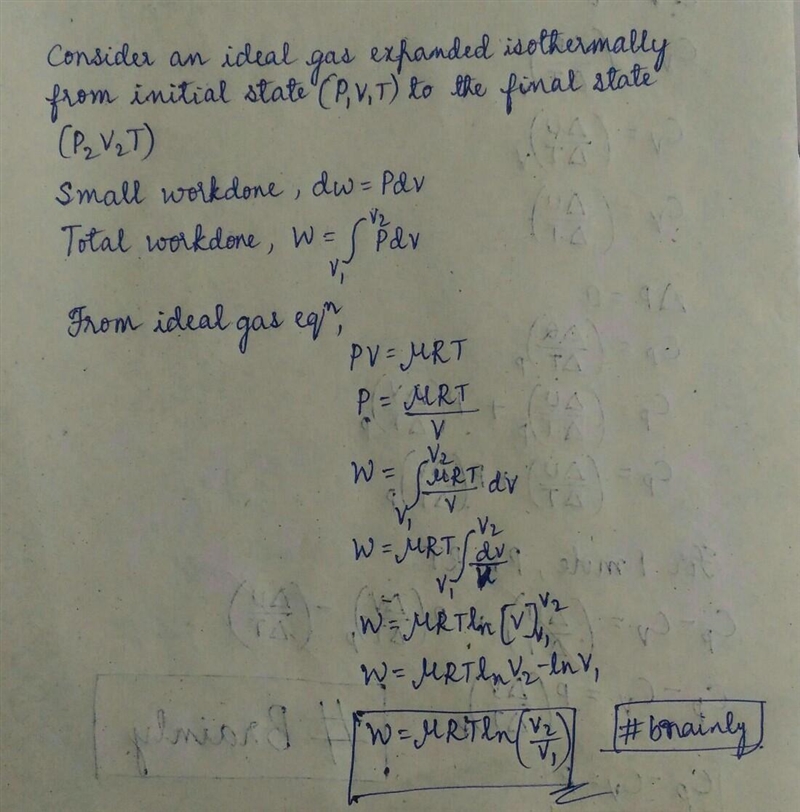 Consider an ideal gas expanded isothermally
from initial state (P₁V₁T) to the final state
(P₂V₂T)
Small workdone, dw = Pdv
Total workdone, W = ∫_{V₁}^{V₂} Pdv
From ideal gas eqⁿ,
PV = μRT
P = μRT/V
W = ∫_{V₁}^{V₂} μRT/V dv
W = μRT ∫_{V₁}^{V₂} dv/V
W = μRT ln [V]_{V₁}^{V₂}
W = μRT ln V₂ - ln V₁
W = μRT ln (V₂/V₁)
#brainly